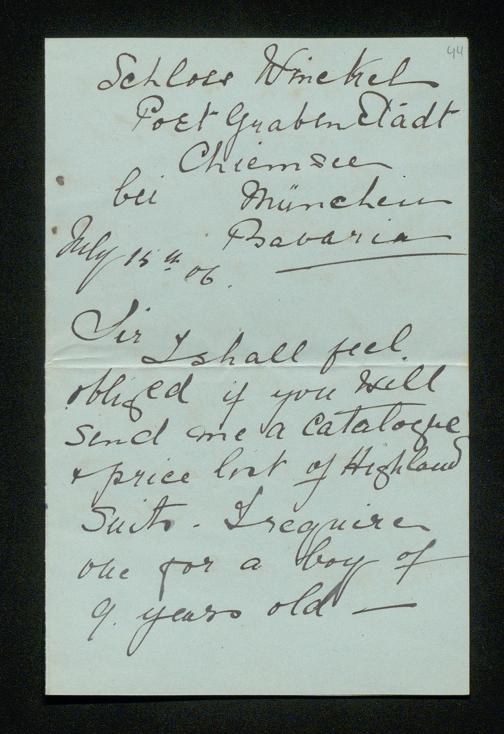 44
Schloss Winckel
Post Grabenstädt
Chiemsee
bei München
Bavaria
July 15th 06.
Sir
I shall feel
obliged if you will
send me a catalogue
& price list of Highland
Suits. I require
one for a boy of
9. years old —